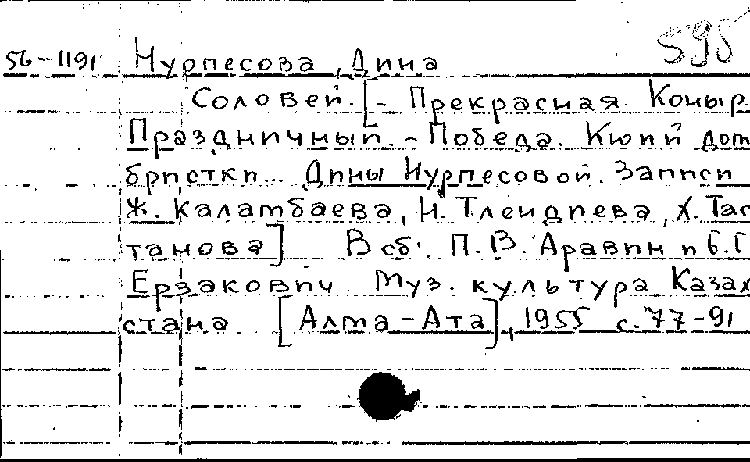 595
56-1191 Нурпесова, Дина
Соловей. [- Прекрасная. Коныр.
Праздничный. - Победа. Кюйи дом
бристки... Дины Нурпесовой. Записи
Ж. Каламбаева, Н. Тлендиева, Х. Тас
танова] В сб. П.В. Аравин и Б.Г.
Ерзакович Муз. культура Казах
стана. [Алма-Ата], 1955 с. 77-91